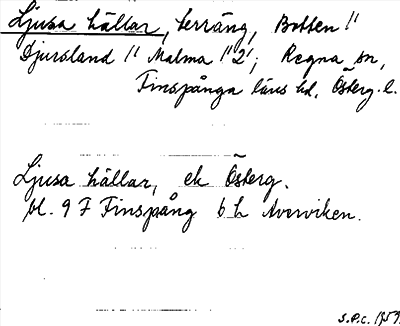 Ljusa hällar, terräng, Botten //
Djursland // Malma // 2 /; Regna sn,
Finspånga läns hd, Österg. l.
Ljusa hällar, ek Österg.
bl. 9 F Finspång 6 h Averviken.
S.P.C. 1959